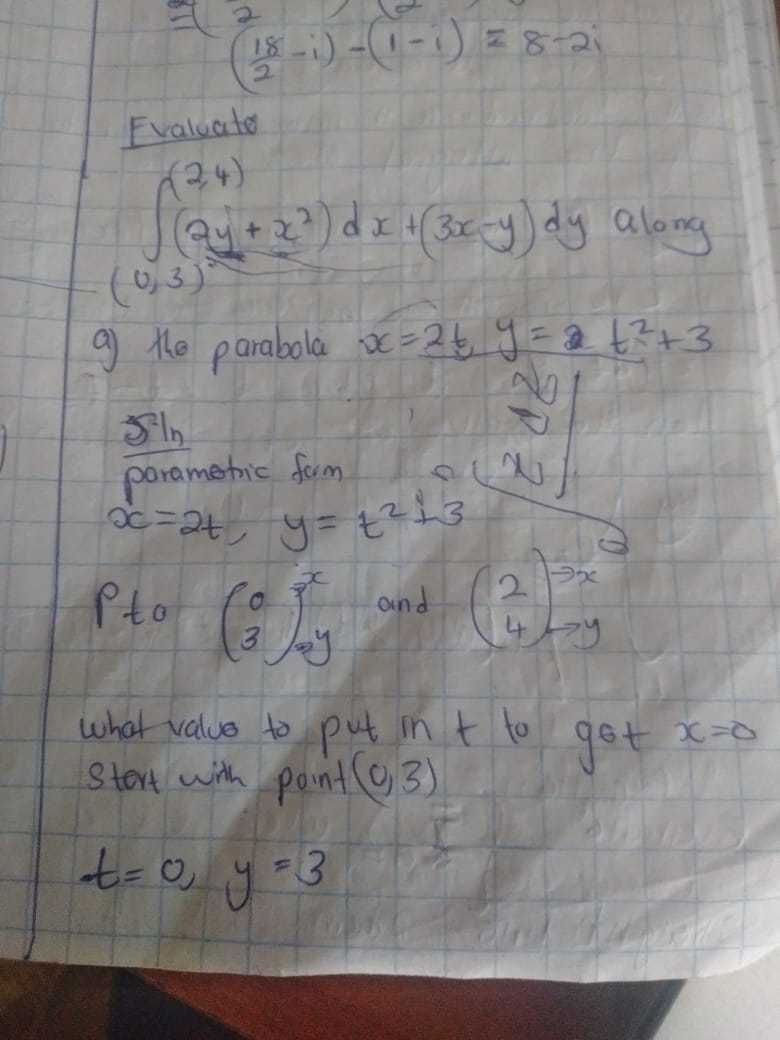 (18/2 - i) - (1 - i) = 8 - 2i
Evaluate
∫(0,3)^(2,4) (2y + x²) dx + (3x - y) dy along
a) the parabola x = 2t, y = t² + 3
Soln
parametric form
x = 2t, y = t² + 3
Pto (0 3) →x →y and (2 4) →x →y
what value to put in t to get x = 0
start with point (0,3)
t = 0, y = 3